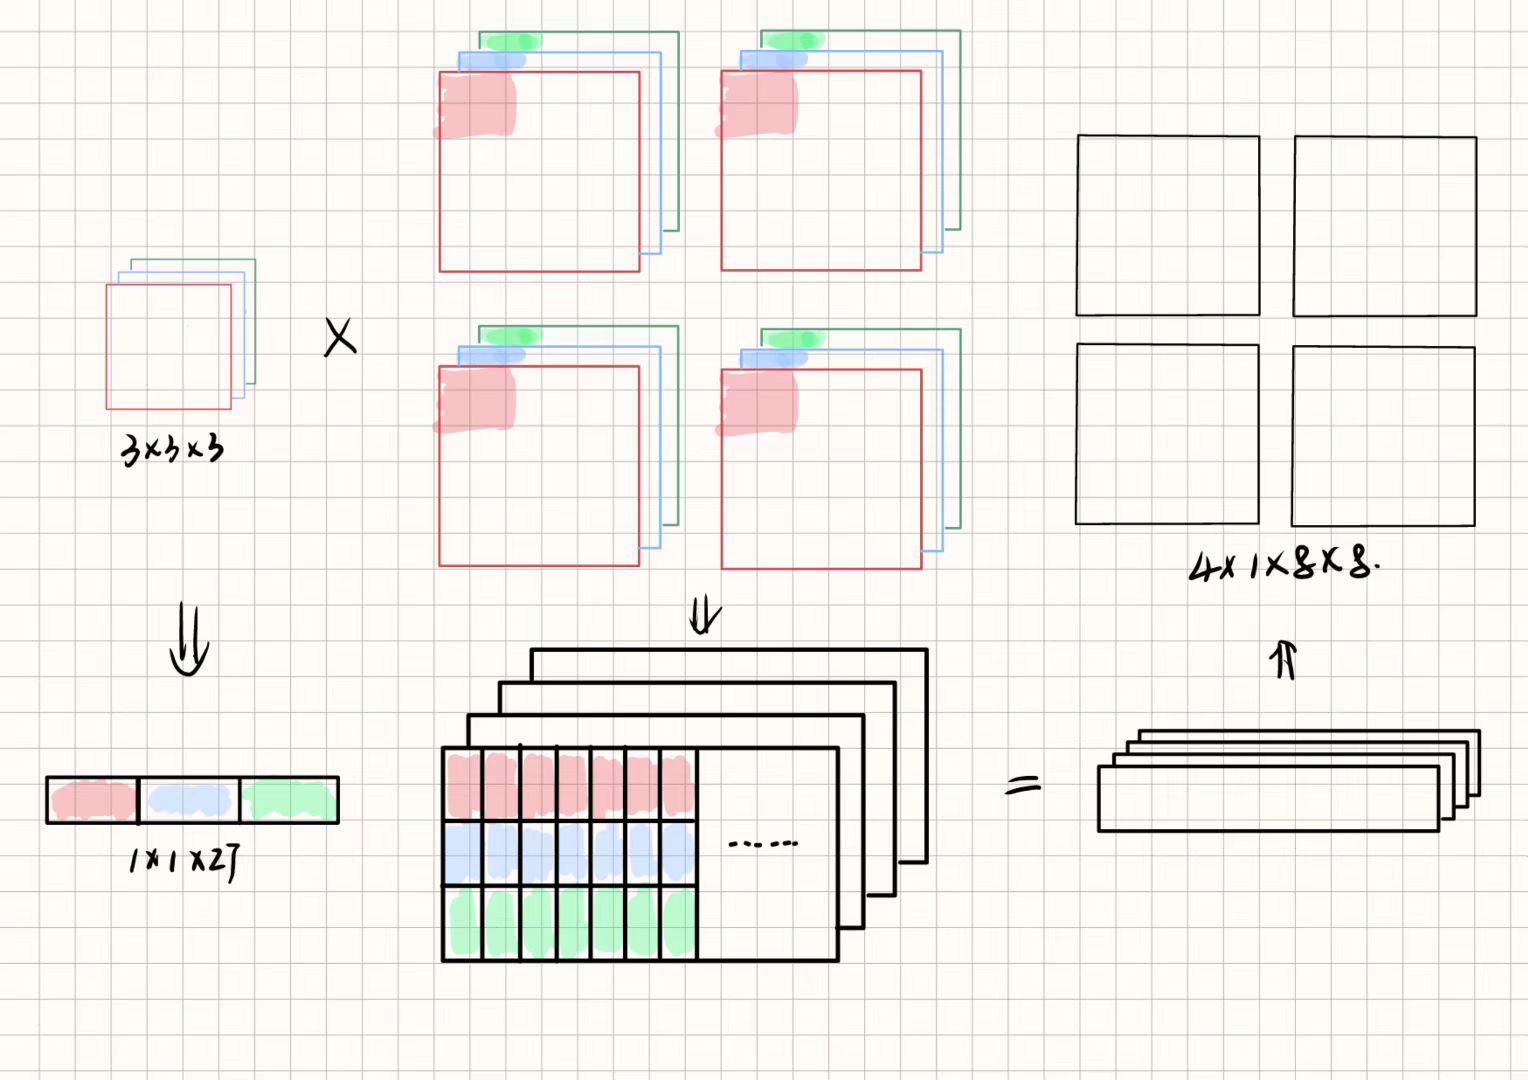 X
3×3×3
4×1×8×8.
⇓
⇓
⇑
=
1×1×27
......